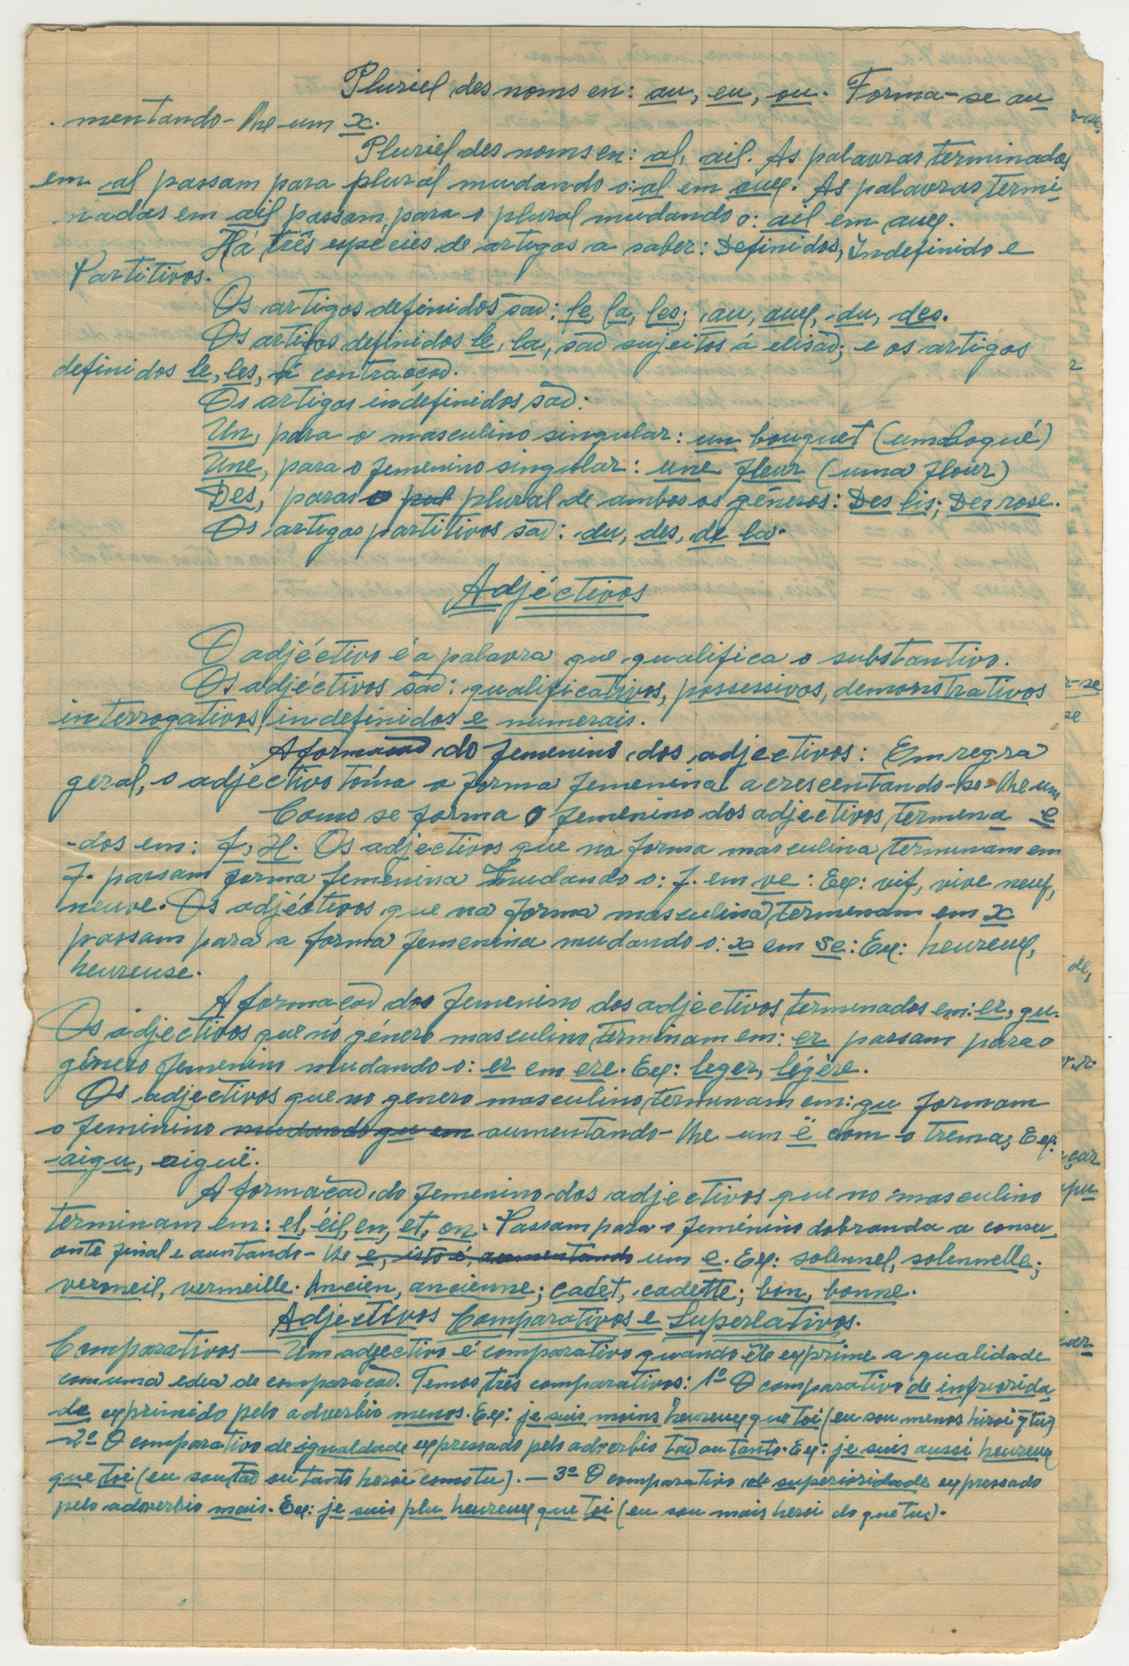 Pluriel des noms en: au, eu, ou. Forma-se au
mentando-lhe um x.
Pluriel des noms en: al, ail. As palavras terminadas
em al passam para plural mudando o: al em aux. As palavras termi-
nadas em ail passam para o plural mudando o: ail em aux.
Há três espécies de artigos a saber: Definidos, Indefinido e
Partitivos.
Os artigos definidos são: le, la, les; au, aux, du, des.
Os artigos definidos le, la, são sujeitos á elisão; e os artigos
definidos le, les, á contracção.
Os artigos indefinidos são:
Un, para o masculino singular: un bouquet (um boqué)
Une, para o femenino singular: une fleur (uma flour)
Des, para o plural de ambos os géneros: Des lis; Des rose.
Os artigos partitivos são: du, des, de la.
Adjéctivos
O adjéctivo é a palavra que qualifica o substantivo.
Os adjéctivos são: qualificativos, possessivos, demonstrativos
interrogativos, indefinidos e numerais.
A formacão do femenino dos adjectivos: Em regra
geral, o adjectivo toma a forma femenina acrescentando-se-lhe um
Como se forma o femenino dos adjectivos termena e
-dos em: f, H. Os adjectivos que na forma masculina terminam em
f. passam forma femenina mudando o: f. em ve: Ex: vif, vive neuf,
neuve. Os adjéctivos que na forma masculina terminam em x
passam para a forma femenina mudando o: x em se: Ex: heureux,
heureuse.
A formacão dos femenino dos adjectivos terminados em: er, gu.
Os adjectivos que no género masculino terminam em: er passam para o
género femenino mudando o: er em ere. Ex: leger, légère.
Os adjectivos que no genero masculino terminam em: gu formam
o feminino mudando gu em aumentando-lhe um ë com o trema; Ex:
aigu, aiguë.
A formacão do femenino dos adjectivos que no masculino
terminam em: el, éil, en, et, on. Passam para o femenino dobranda a conso-
ante final e auntando-lhe e, isto é, aumentando um e. Ex: solennel, solennelle;
vermeil, vermeille. Ancien, ancienne; cadet, cadette; bon, bonne.
Adjectivos Comparativos e Superlativos.
Comparativos — Um adjectivo é comparativo quando êle exprime a qualidade
com uma edea de comparacão. Temos três comparativos: 1º O comparativo de inferorida-
de exprimido pelo adverbio menos. Ex: je suis moins heureux que toi (eu sou menos hiroi q̃ tu)
—2º O comparativo de igualdade expressado pelo adverbio tão ou tanto. Ex: je suis aussi heureux
que toi (eu sou tão ou tanto heroi como tu). — 3º O comparativo de superioridade expressado
pelo adverbio mais. Ex: je suis plu heureux que toi (eu sou mais heroi do que tu).